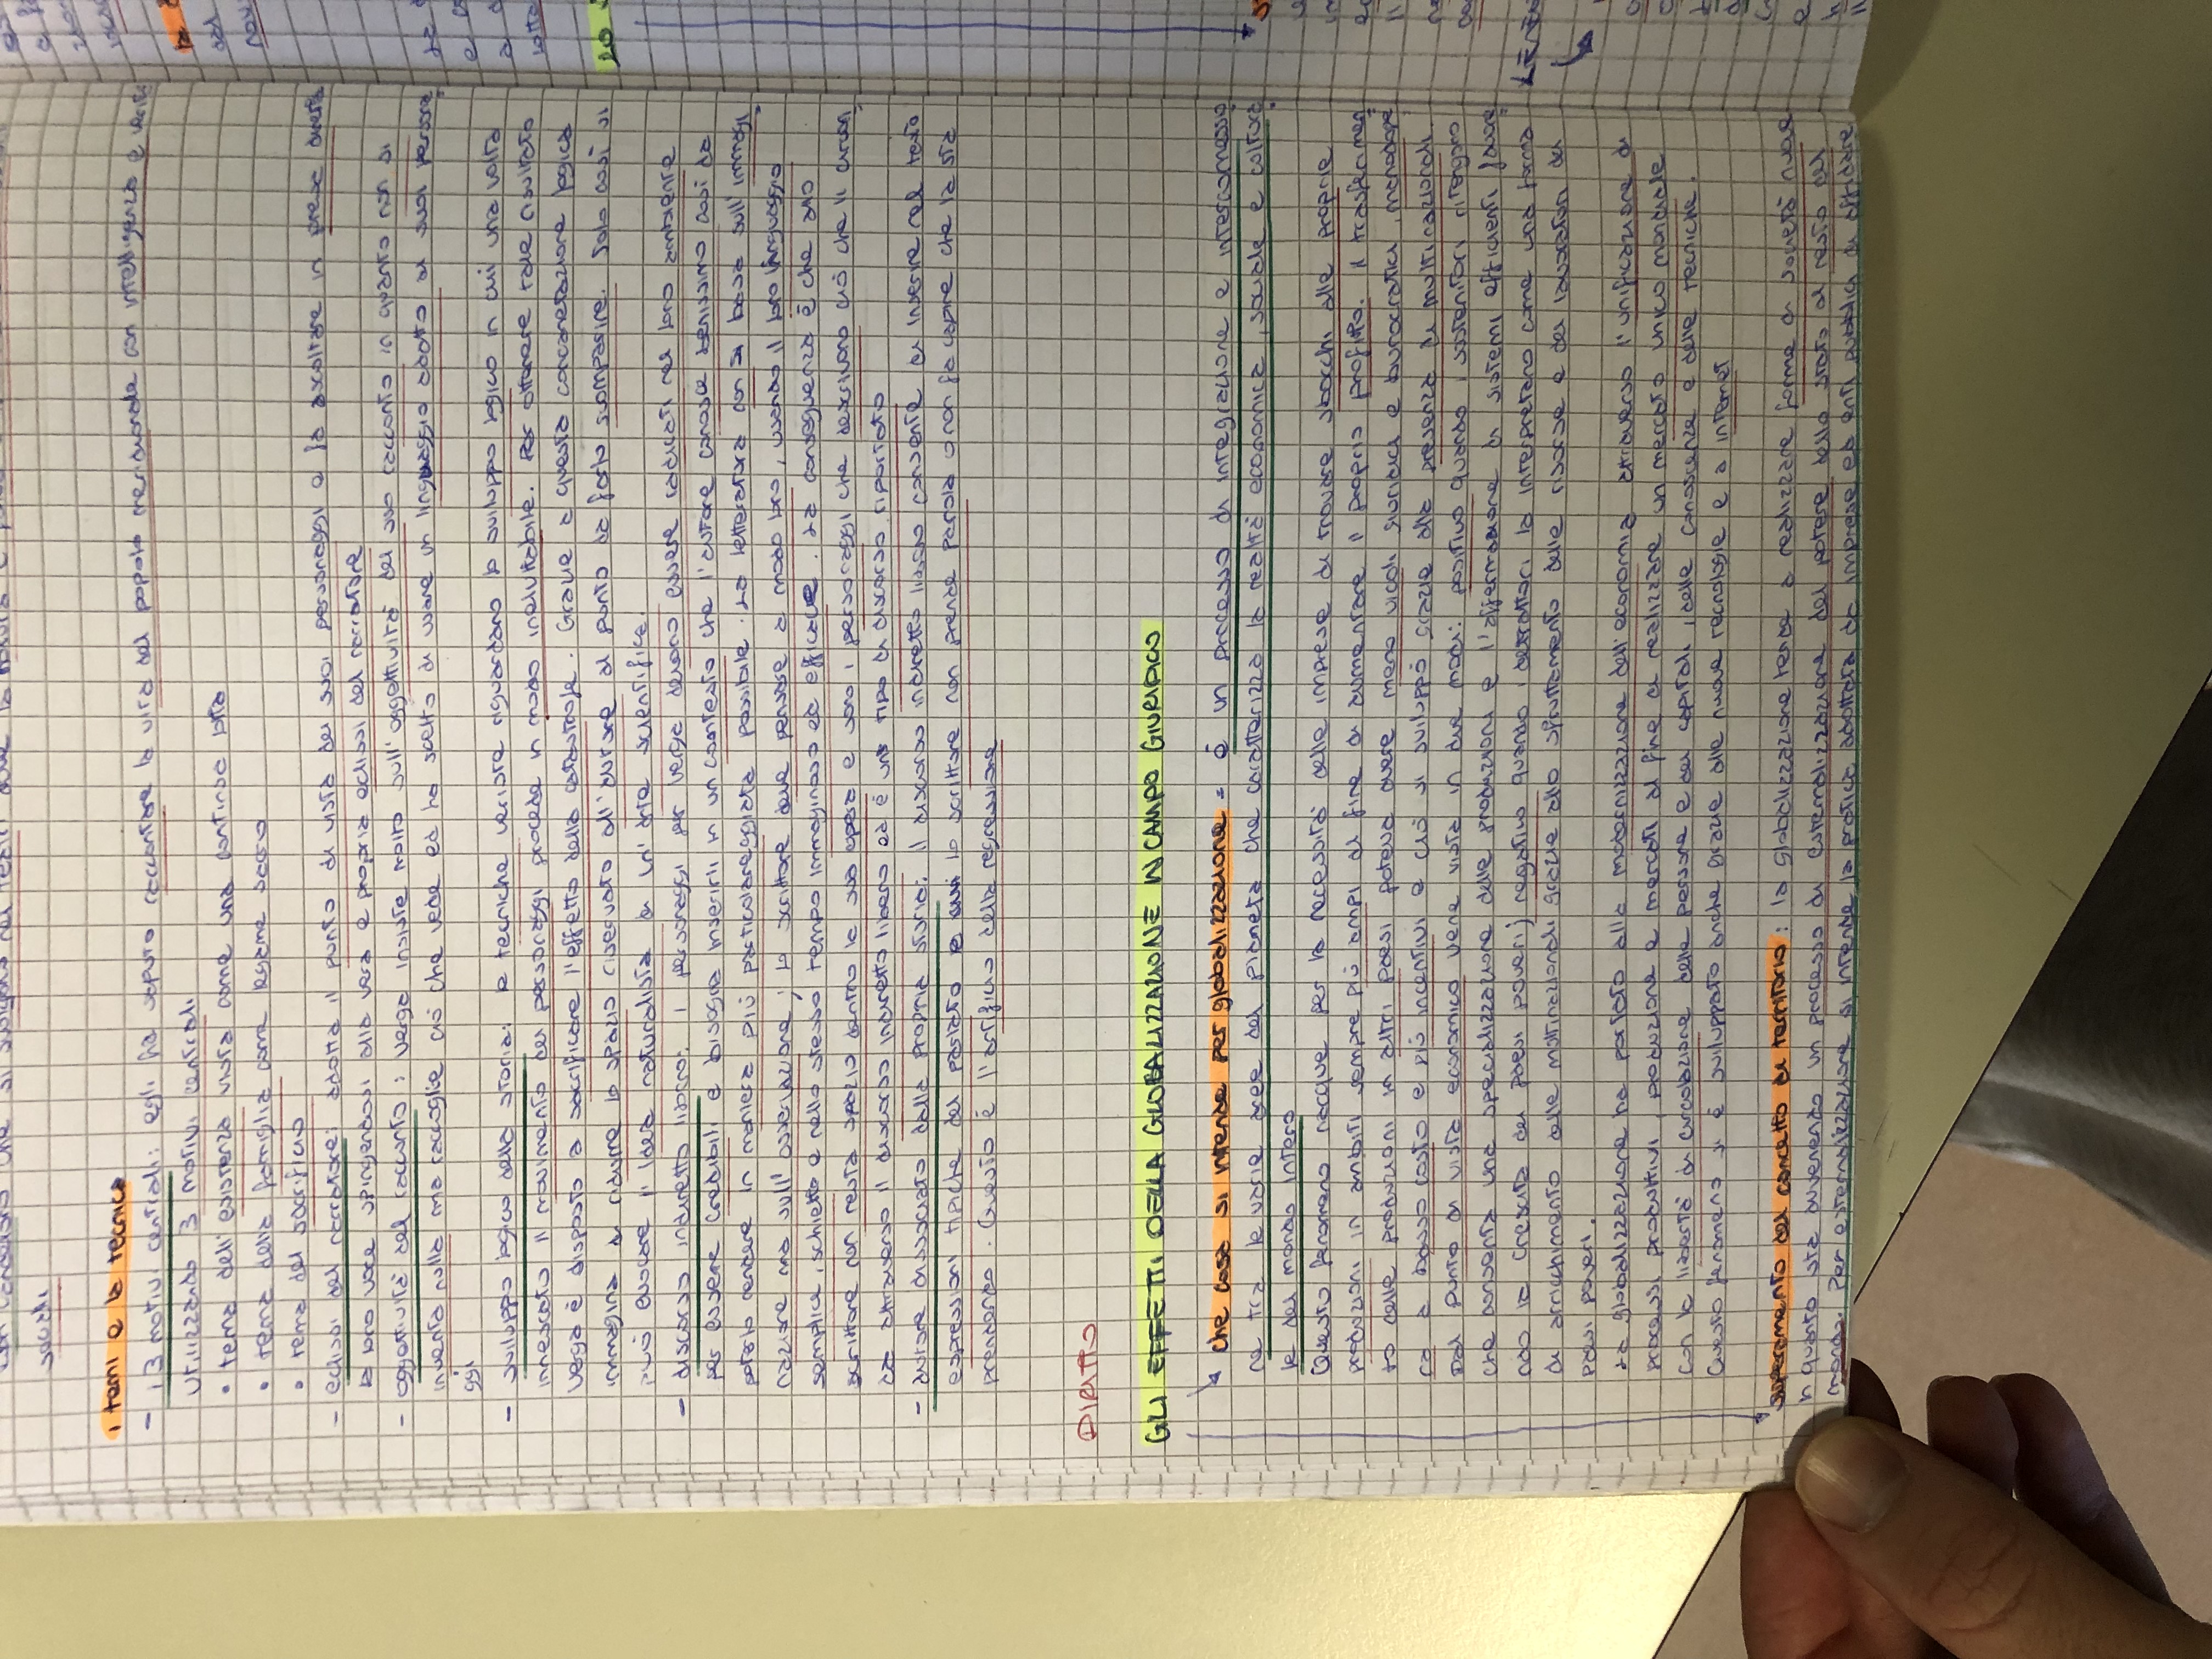 sociali
i temi e la tecnica
- i 3 motivi centrali: egli ha saputo raccontare la vita del popolo meridionale con intelligenza e
utilizzando 3 motivi centrali
• tema dell'esistenza vista come una continua lotta
• tema della famiglia come legame sacro
• tema del sacrificio
- eclissi del narratore: adotta il punto di vista dei suoi personaggi e fa ascoltare in presa diretta
la loro voce spingendosi alla vera e propria eclissi del narratore
- oggettività del racconto: Verga insiste molto sull'oggettività del suo racconto in quanto non si
inventa nulla ma raccoglie ciò che vede ed ha scelto di usare un linguaggio adatto ai suoi persona
ggi
- sviluppo logico della storia: le tecniche veriste riguardano lo sviluppo logico in cui una volta
innescato il movimento dei personaggi procede in modo ineluttabile. Per ottenere tale risultato
Verga è disposto a sacrificare l'effetto della catastrofe. Grazie a questa concatenazione logica
immagina di ridurre lo spazio riseguato all'autore al punto da farlo scomparire. Solo così si
può evocare l'idea naturalista di un'arte scientifica.
- discorso indiretto libero: i personaggi per Verga devono essere radicati nel loro ambiente
per essere credibili e bisogna inserirli in un contesto che l'autore conosce benissimo così da
poterlo rendere in maniera più particolareggiata possibile. La letteratura non si basa sull'immagi
nazione ma sull'osservazione; lo scrittore deve pensare a modo loro, usando il loro linguaggio
semplice, schietto e nello stesso tempo immaginoso ed efficace. La conseguenza è che allo
scrittore non resta spazio dentro la sua opera e sono i personaggi che descrivono ciò che li circon
da attraverso il discorso indiretto libero ed è uno tipo di discorso riportato
- autore dissociato dalla propria storia: il discorso indiretto libero consente di inserire nel testo
espressioni tipiche del parlato lo scrittore non prende parola o non fa capire che la sta
prendendo. Questo è l'artificio della regressione
DIRITTO
GLI EFFETTI DELLA GLOBALIZZAZIONE IN CAMPO GIURIDICO
che cosa si intende per globalizzazione = è un processo di integrazione e interconnessio
ne tra le varie aree del pianeta che caratterizza la realtà economica, sociale e cultura
le del mondo intero
Questo fenomeno nacque per la necessità delle imprese di trovare sbocchi alle proprie
produzioni in ambiti sempre più ampi al fine di aumentare il proprio profitto. Il trasferimen
to delle produzioni in altri paesi poteva avere meno vicoli giuridici e burocratici, manodope
ra a basso costo e più incentivi e ciò si sviluppò grazie alla presenza di multinazionali.
Dal punto di vista economico viene vista in due modi: positivo quando i sostenitori ritengono
che consenta una specializzazione delle produzioni e l'affermazione di sistemi efficienti favore
ndo la crescita dei paesi poveri; negativo quando i detrattori la interpretano come una forma
di arricchimento delle multinazionali grazie allo sfruttamento delle risorse e dei lavoratori dei
paesi poveri.
La globalizzazione ha portato alla modernizzazione dell'economia attraverso l'unificazione di
processi produttivi, produzione e mercati al fine di realizzare un mercato unico mondiale
con la libertà di circolazione delle persone e dei capitali, delle conoscenze e delle tecniche.
Questo fenomeno si è sviluppato anche grazie alle nuove tecnologie e a internet
superamento del concetto di territorio: la globalizzazione tende a realizzare forme di società nuove
in quanto sta avvenendo un processo di esternalizzazione del potere dello stato al resto del
mondo. Per esternalizzazione si intende la pratica adottata da imprese ed enti pubblici di affidare